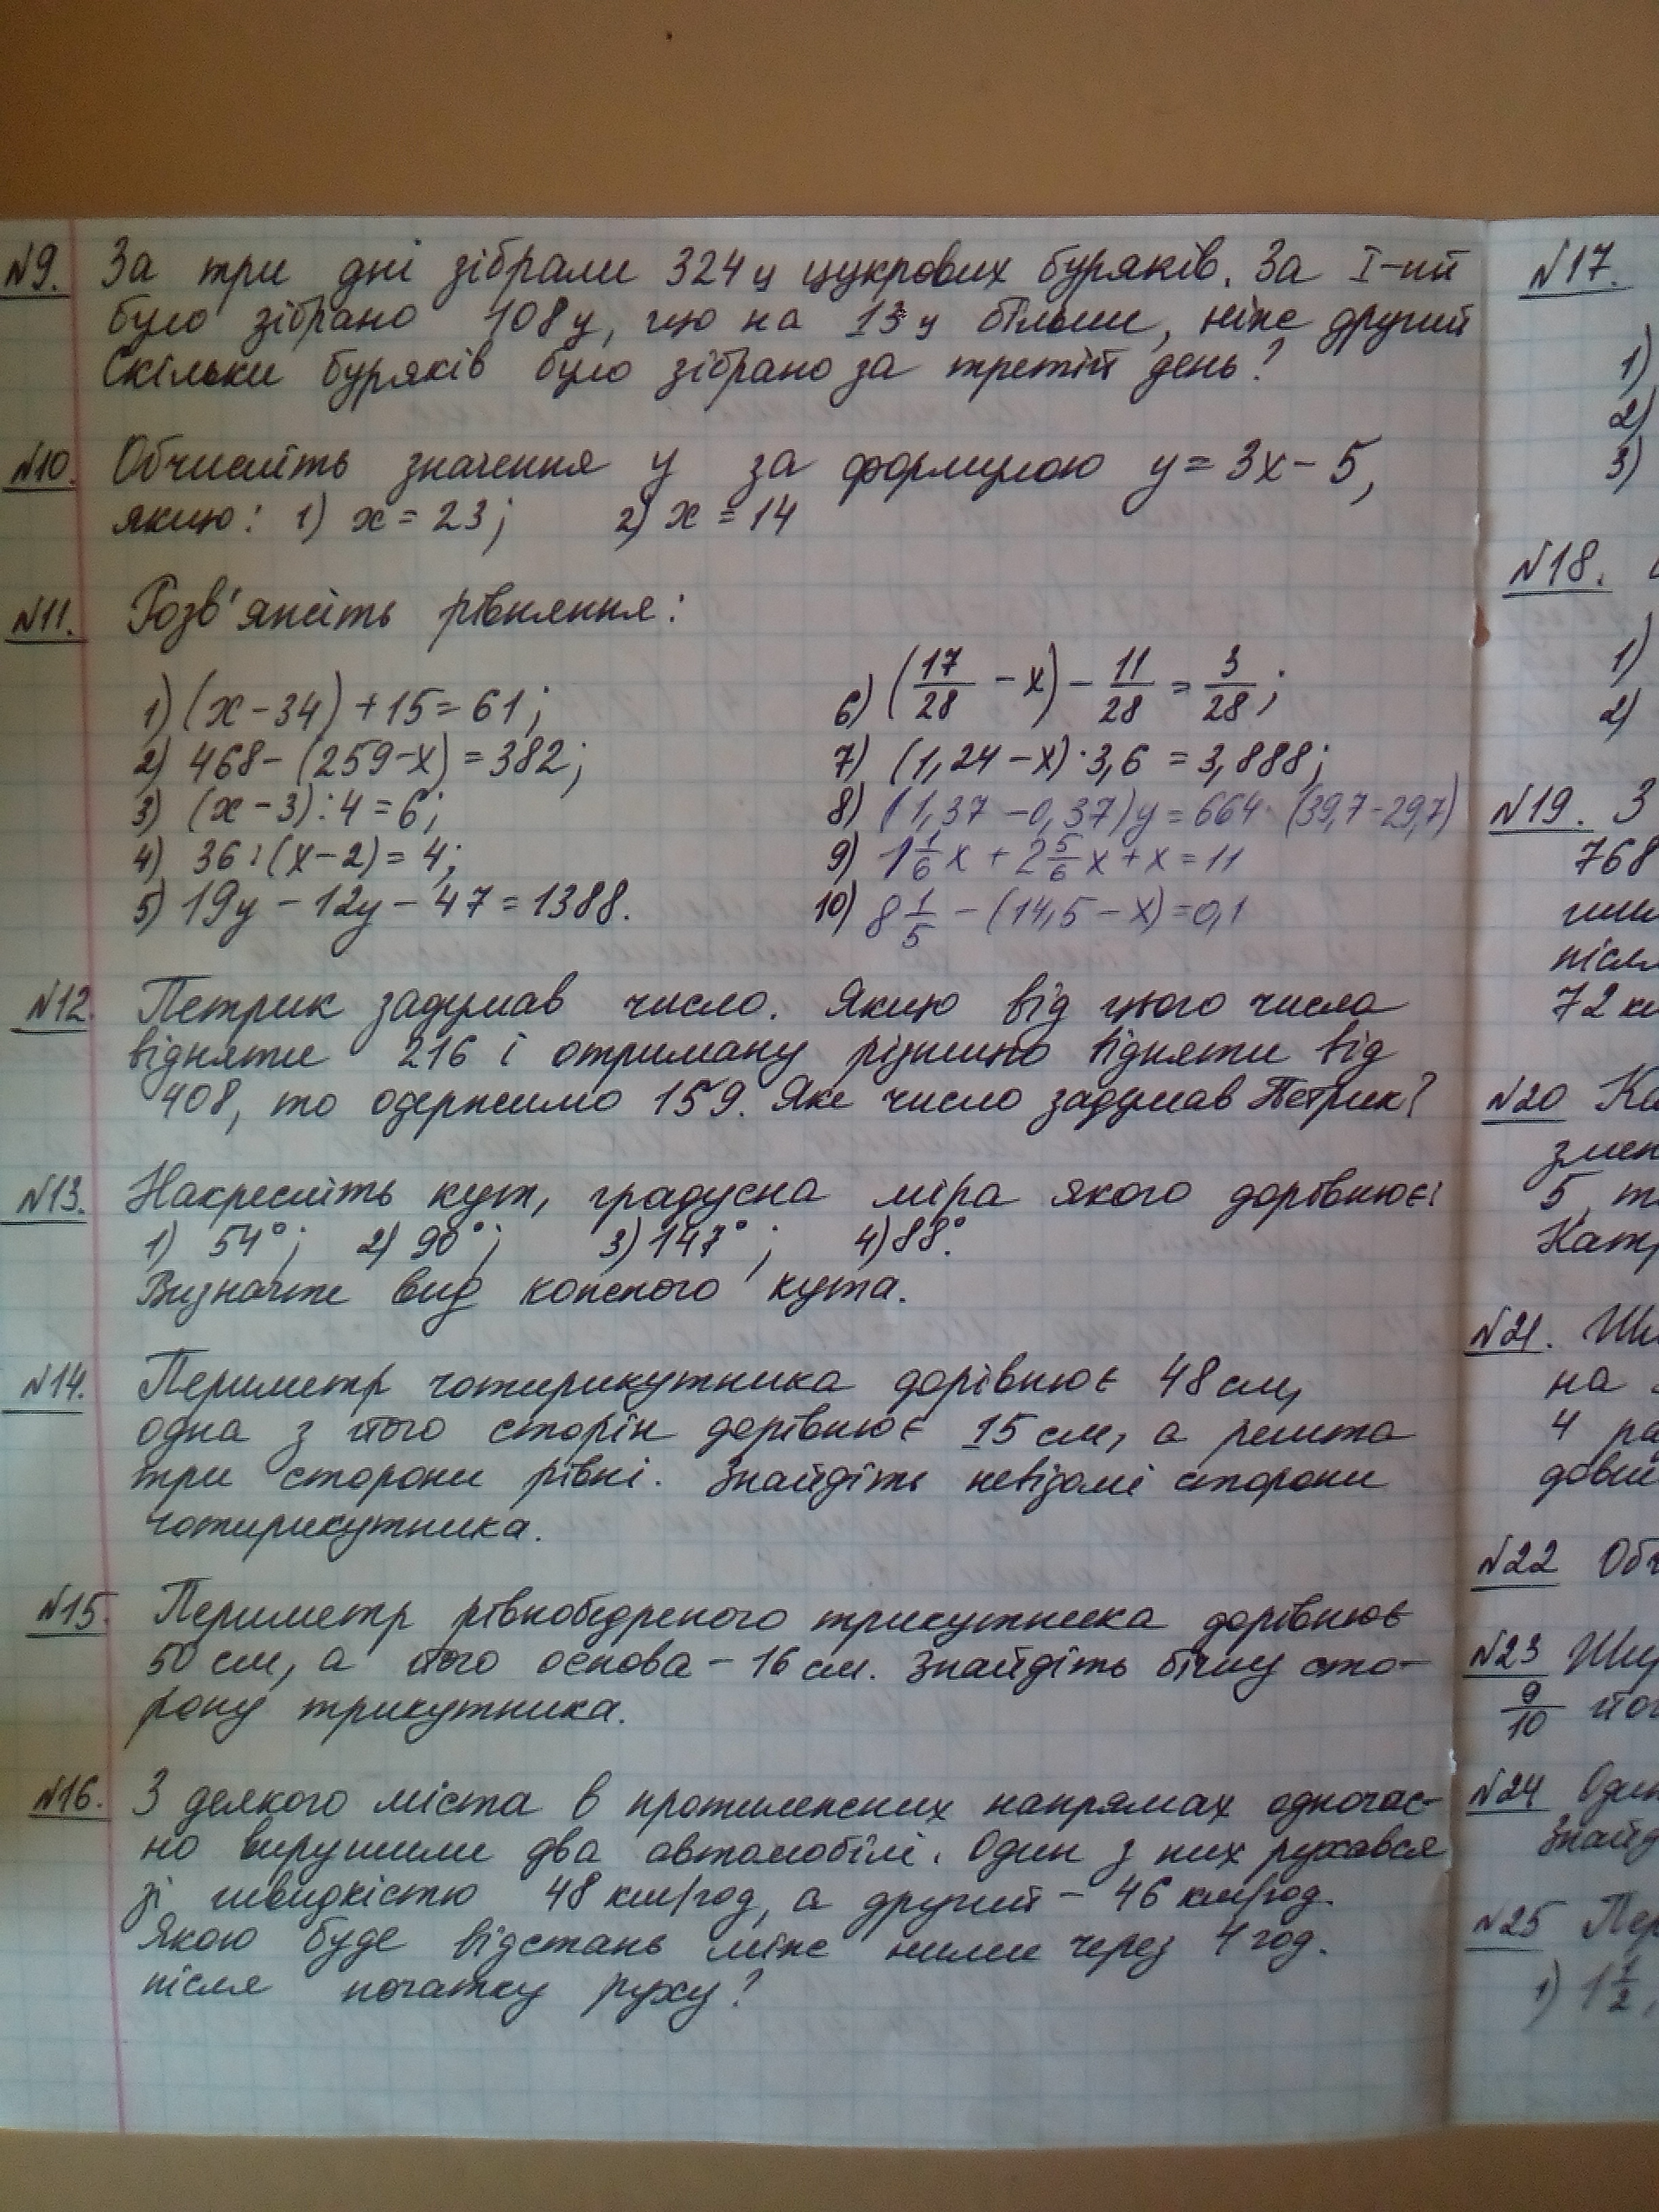 №9. За три дні зібрали 324 ц цукрових буряків. За I-ий
було зібрано 108 ц, що на 13 ц більше, ніж другий
Скільки буряків було зібрано за третій день?
№10. Обчисліть значення y за формулою y = 3x - 5,
якщо: 1) x = 23; 2) x = 14
№11. Розв'яжіть рівняння:
1) (x - 34) + 15 = 61; 6) (17/28 - x) - 11/28 = 3/28;
2) 468 - (259 - x) = 382; 7) (1,24 - x) · 3,6 = 3,888;
3) (x - 3) : 4 = 6; 8) (1,37 - 0,37) y = 664 · (39,7 - 29,7)
4) 36 : (x - 2) = 4; 9) 1 1/6 x + 2 5/6 x + x = 11
5) 19y - 12y - 47 = 1388. 10) 8 1/5 - (14,5 - x) = 0,1
№12. Петрик задумав число. Якщо від цього числа
відняти 216 і отриману різницю відняти від
408, то одержимо 159. Яке число задумав Петрик?
№13. Накресліть кут, градусна міра якого дорівнює:
1) 54°; 2) 90°; 3) 147°; 4) 88°.
Визначте вид кожного кута.
№14. Периметр чотирикутника дорівнює 48 см,
одна з його сторін дорівнює 15 см, а решта
три сторони рівні. Знайдіть невідомі сторони
чотирикутника.
№15. Периметр рівнобедреного трикутника дорівнює
50 см, а його основа - 16 см. Знайдіть бічну сто-
рону трикутника.
№16. З деякого міста в протилежних напрямах одночас-
но вирушили два автомобілі. Один з них рухався
зі швидкістю 48 км/год, а другий - 46 км/год.
Якою буде відстань між ними через 4 год.
після початку руху?
№17.
1)
2)
3)
№18.
1)
2)
№19. З
768
після
72 км
№20
5
№21.
на
4
№22
№23
9/10
№24
№25
1) 1 1/2,